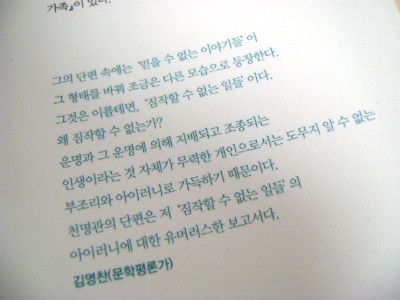 가족』이 있다.
그의 단편 속에는 '믿을 수 없는 이야기들'이
그 형태를 바꿔 조금은 다른 모습으로 등장한다.
그것은 이를테면, '짐작할 수 없는 일들'이다.
왜 짐작할 수 없는가?
운명과 그 운명에 의해 지배되고 조종되는
인생이라는 것 자체가 무력한 개인으로서는 도무지 알 수 없는
부조리와 아이러니로 가득하기 때문이다.
천명관의 단편은 저 '짐작할 수 없는 일들'의
아이러니에 대한 유머러스한 보고서다.
김영찬(문학평론가)